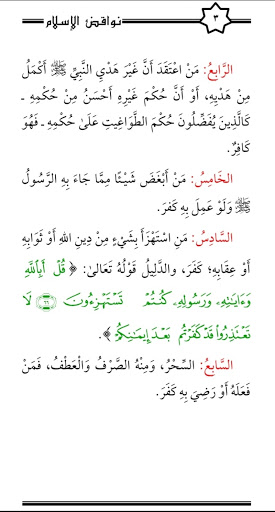 نواقض الإسلام
٣
الرَّابِعُ: مَنْ اعْتَقَدَ أَنَّ غَيْرَ هَدْيِ النَّبِيِّ ﷺ أَكْمَلُ
مِنْ هَدْيِهِ، أَوْ أَنَّ حُكْمَ غَيْرِهِ أَحْسَنُ مِنْ حُكْمِهِ ـ
كَالَّذِينَ يُفَضِّلُونَ حُكْمَ الطَّوَاغِيتِ عَلَىٰ حُكْمِهِ ـ فَهُوَ
كَافِرٌ.
الخَامِسُ: مَنْ أَبْغَضَ شَيْئًا مِمَّا جَاءَ بِهِ الرَّسُولُ
ﷺ وَلَوْ عَمِلَ بِهِ كَفَرَ.
السَّادِسُ: مَنِ اسْتَهْزَأَ بِشَيْءٍ مِنْ دِينِ اللهِ أَوْ ثَوَابِهِ
أَوْ عِقَابِهِ؛ كَفَرَ، وَالدَّلِيلُ قَوْلُهُ تَعَالَىٰ: ﴿ قُلْ أَبِاللَّهِ
وَءَايَٰتِهِۦ وَرَسُولِهِۦ كُنتُمْ تَسْتَهْزِءُونَ ٦٥ لَا
تَعْتَذِرُوا۟ قَدْ كَفَرْتُم بَعْدَ إِيمَٰنِكُمْ ﴾.
السَّابِعُ: السِّحْرُ، وَمِنْهُ الصَّرْفُ وَالْعَطْفُ، فَمَنْ
فَعَلَهُ أَوْ رَضِيَ بِهِ كَفَرَ.